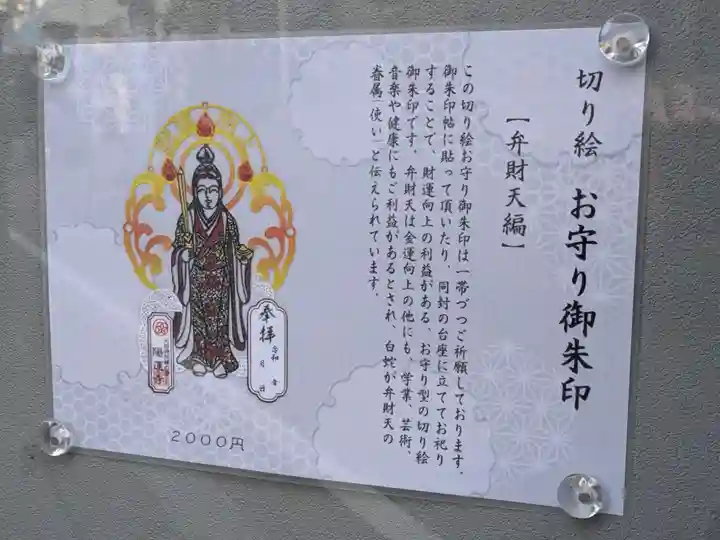 切り絵 お守り御朱印
【弁財天編】
この切り絵お守り御朱印は一帯づつご祈願しております。
御朱印帖に貼って頂いたり、同封の台座に立ててお祀り
することで、財運向上の利益がある、お守り型の切り絵
御朱印です。弁財天は金運向上の他にも、学業、芸術、
音楽や健康にもご利益があるとされ、白蛇が弁財天の
眷属（使い）と伝えられています。
奉拝
令和 年
月 日
陽運寺
2000円